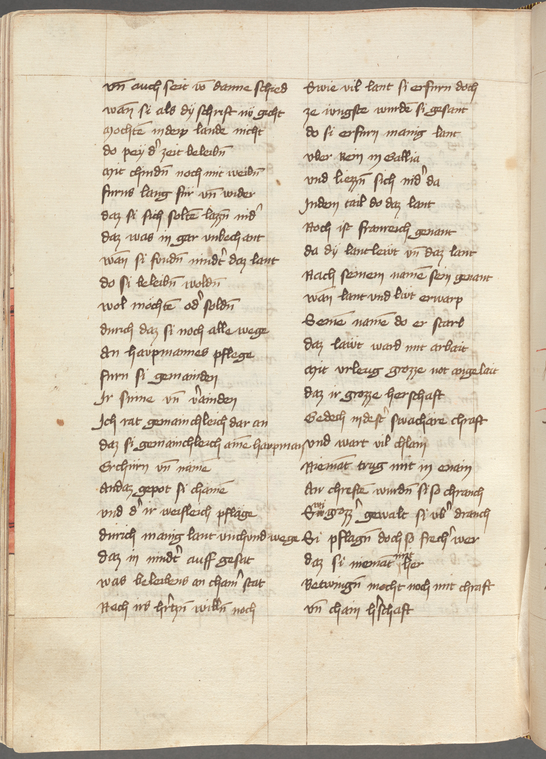 vn̄ auch seit vō danne schied
wan si als dy schrift nv̄ gecht
Mochtē in derr lande nicht
do pey d' zeit beleibn̄
Mit chindn̄ noch mit weibn̄
furns lang fur vn̄ wider
daz si sich soltē lazn̄ nid'
daz was in gar vnbechant
wan si fundn̄ nindt' daz lant
do si beleibn̄ woldn̄
wol mochtē od' soldn̄
durich daz si noch alle wege
An haupmannes pflege
furn si gemainden
Ir sinne vn̄ v'ainden
Ich rat gemainchleich dar an
daz si gemainchleich aine haupman
Erchurn vn̄ name
An daz gepot si chame
vnd d' ir weisleich pflage
durich manig laut vnchund wege
daz in nindt' auff gesat
was beleibens an chain' stat
Nach irs h'tzn̄ willn̄ noch
Swie vil lant si erfurn doch
ze iungste wurdē si gesant
do si erfurn manig lant
vber Rein in Gallia
vnd liezzn̄ sich nid' da
In den tail do daz lant
Noch ist franreich genant
da dy lantlawt vn̄ daz lant
Nach seinem namē sein genant
wan lant vnd lawt erwarp
Seinē namē do er starb
daz lawt ward mit arbait
Mit vrleug grozze not angelait
daz ir grozze herschaft
Gedech in dest' swachare chraft
vnd wart vil chlain
Niemāt trug mit in enain
An chrefte wurdn̄ si so chranch
Swi grozz' gewalt si vb' dranch
Si pflagn̄ doch so frech' wer
daz si niemāt mit her
Betwingn̄ mocht noch mit chraft
vn̄ chain h'schaft